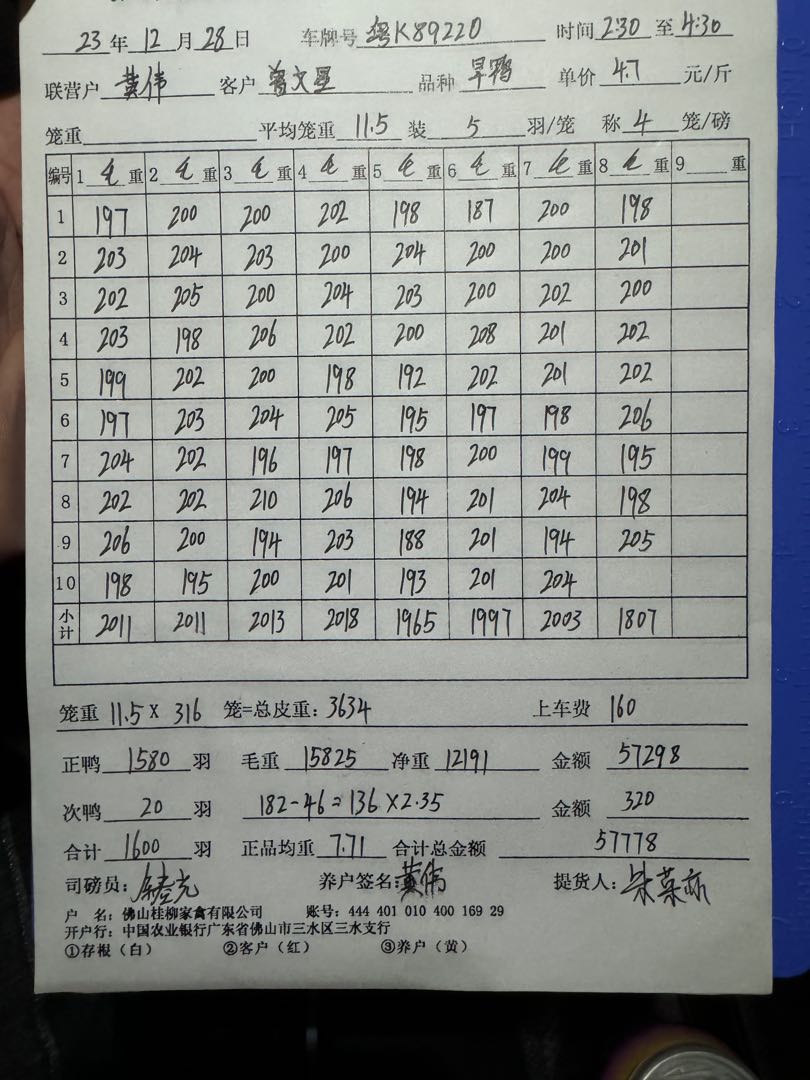 23 年 12 月 28 日 车牌号 粤K89220 时间 2:30 至 4:30
联营户 黄伟 客户 曾文星 品种 旱鸭 单价 4.7 元/斤
笼重 平均笼重 11.5 装 5 羽/笼 称 4 笼/磅
编号 1 毛 重 2 毛 重 3 毛 重 4 毛 重 5 毛 重 6 毛 重 7 毛 重 8 毛 重 9 重
1 197 200 200 202 198 187 200 198
2 203 204 203 200 204 200 200 201
3 202 205 200 204 203 200 202 200
4 203 198 206 202 200 208 201 202
5 199 202 200 198 192 202 201 202
6 197 203 204 205 195 197 198 206
7 204 202 196 197 198 200 199 195
8 202 202 210 206 194 201 204 198
9 206 200 194 203 188 201 194 205
10 198 195 200 201 193 201 204
小计 2011 2011 2013 2018 1965 1997 2003 1807
笼重 11.5 X 316 笼=总皮重: 3634 上车费 160
正鸭 1580 羽 毛重 15825 净重 12191 金额 57298
次鸭 20 羽 182-46=136×2.35 金额 320
合计 1600 羽 正品均重 7.71 合计总金额 57778
司磅员: 养户签名: 黄伟 提货人:
户 名: 佛山桂柳家禽有限公司 账号: 444 401 010 400 169 29
开户行: 中国农业银行广东省佛山市三水区三水支行
①存根（白） ②客户（红） ③养户（黄）